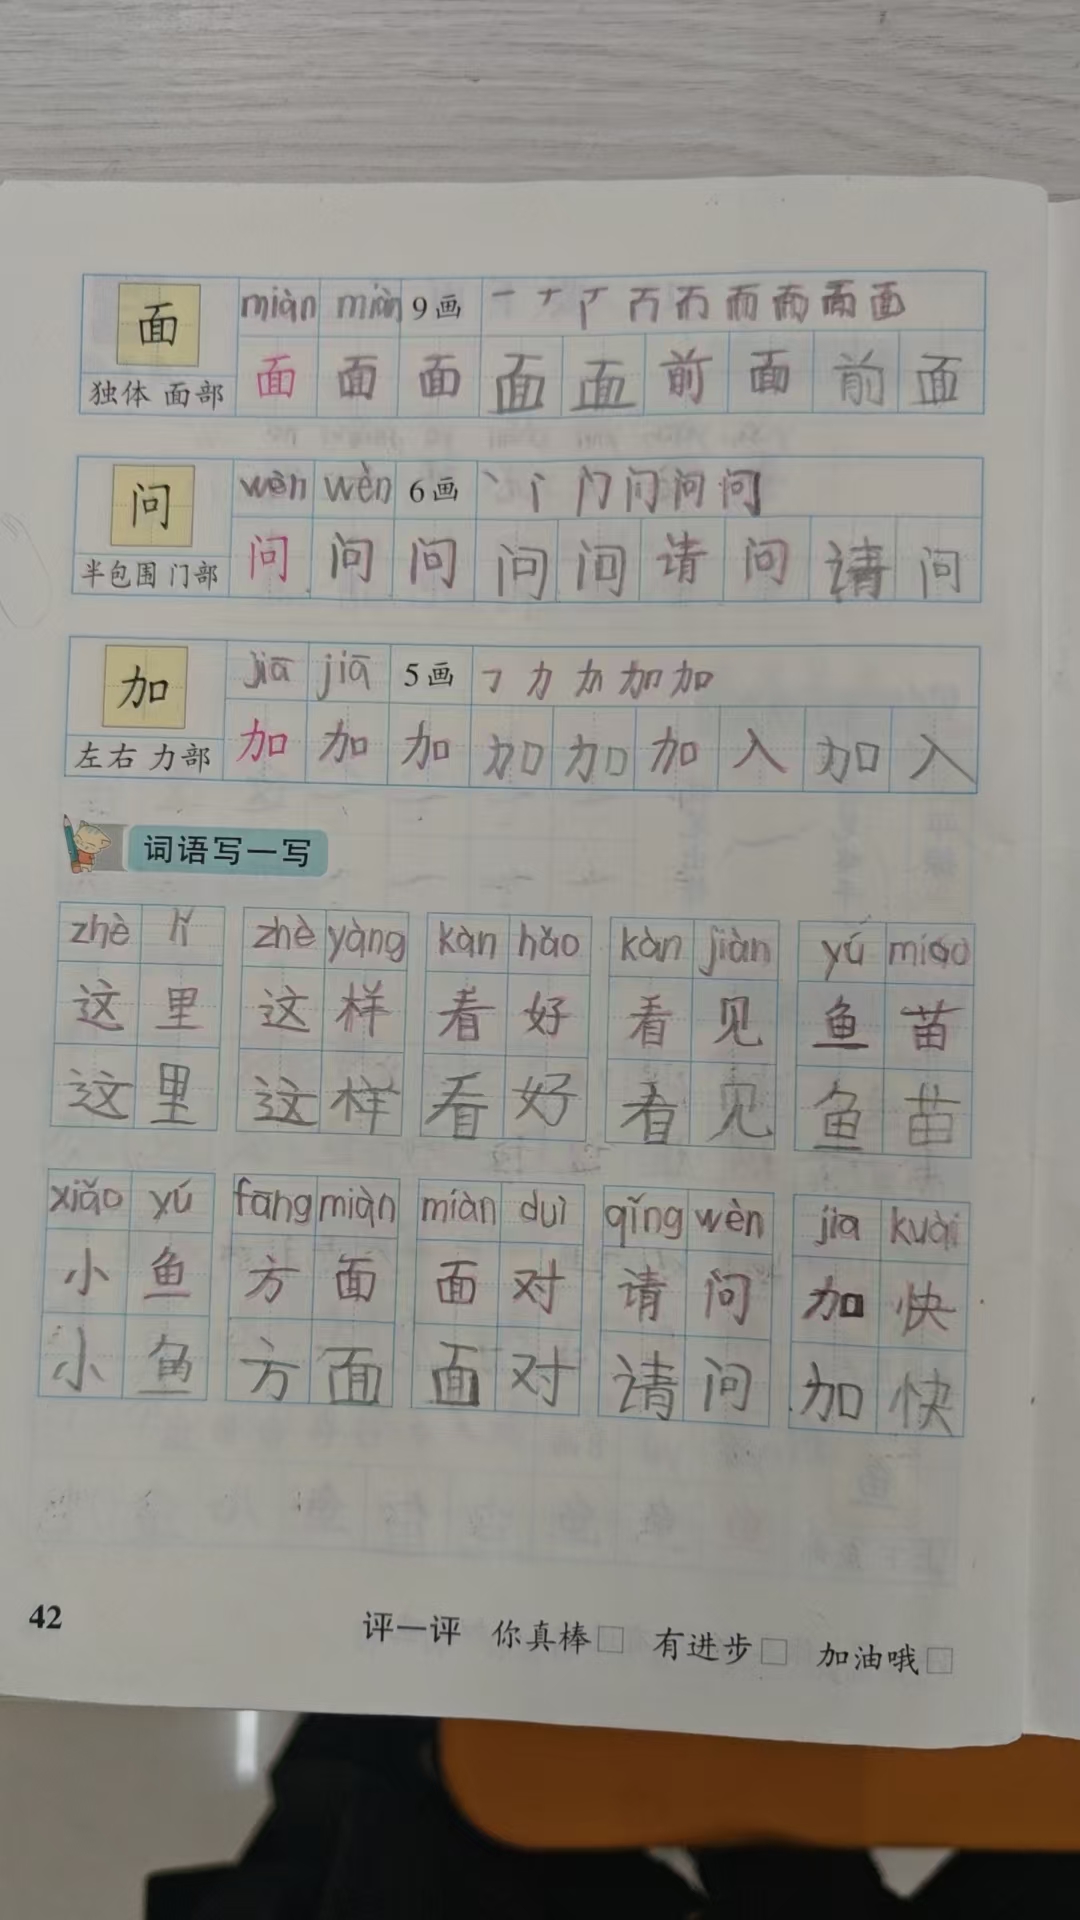 面 miàn miàn 9画 一 丆 面
独体 面部 面 面 面 面 面 前 面 前 面
问 wèn wèn 6画 丶 门 问 问
半包围 门部 问 问 问 问 问 请 问 请 问
加 jiā jiā 5画 ㇆ 力 加 加
左右 力部 加 加 加 加 加 加 入 加 入
词语写一写
zhè lǐ zhè yàng kàn hǎo kàn jiàn yú miáo
这里 这样 看好 看见 鱼苗
这里 这样 看好 看见 鱼苗
xiǎo yú fāng miàn miàn duì qǐng wèn jia kuài
小鱼 方面 面对 请问 加快
小鱼 方面 面对 请问 加快
42 评一评 你真棒□ 有进步□ 加油哦□